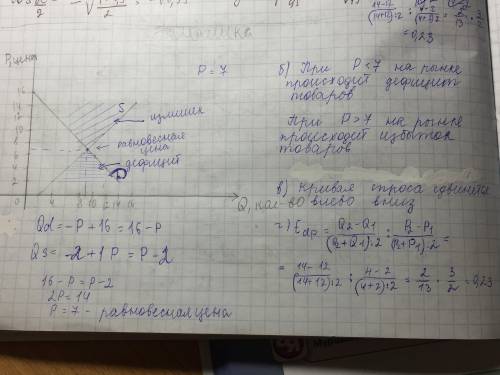 P, цена
16
14
12
10
8
6
4
2
0
2 4 8 10 12 14 16
Q, кол-во
S
излишек
равновесная
цена
дефицит
D
P = 7
Qd = -P + 16 = 16 - P
Qs = -2 + 1P = P - 2
16 - P = P - 2
2P = 14
P = 7 - равновесная цена
= 0,23
б) При P < 7 на рынке
происходит дефицит
товаров
При P > 7 на рынке
происходит избыток
товаров
в) Кривая спроса сдвинется
влево вниз
г) Edp = (Q2 - Q1)/((Q2 + Q1):2) : (P2 - P1)/((P2 + P1):2) =
= (14 - 12)/((14 + 12):2) : (4 - 2)/((4 + 2):2) = 2/13 · 3/2 = 0,23